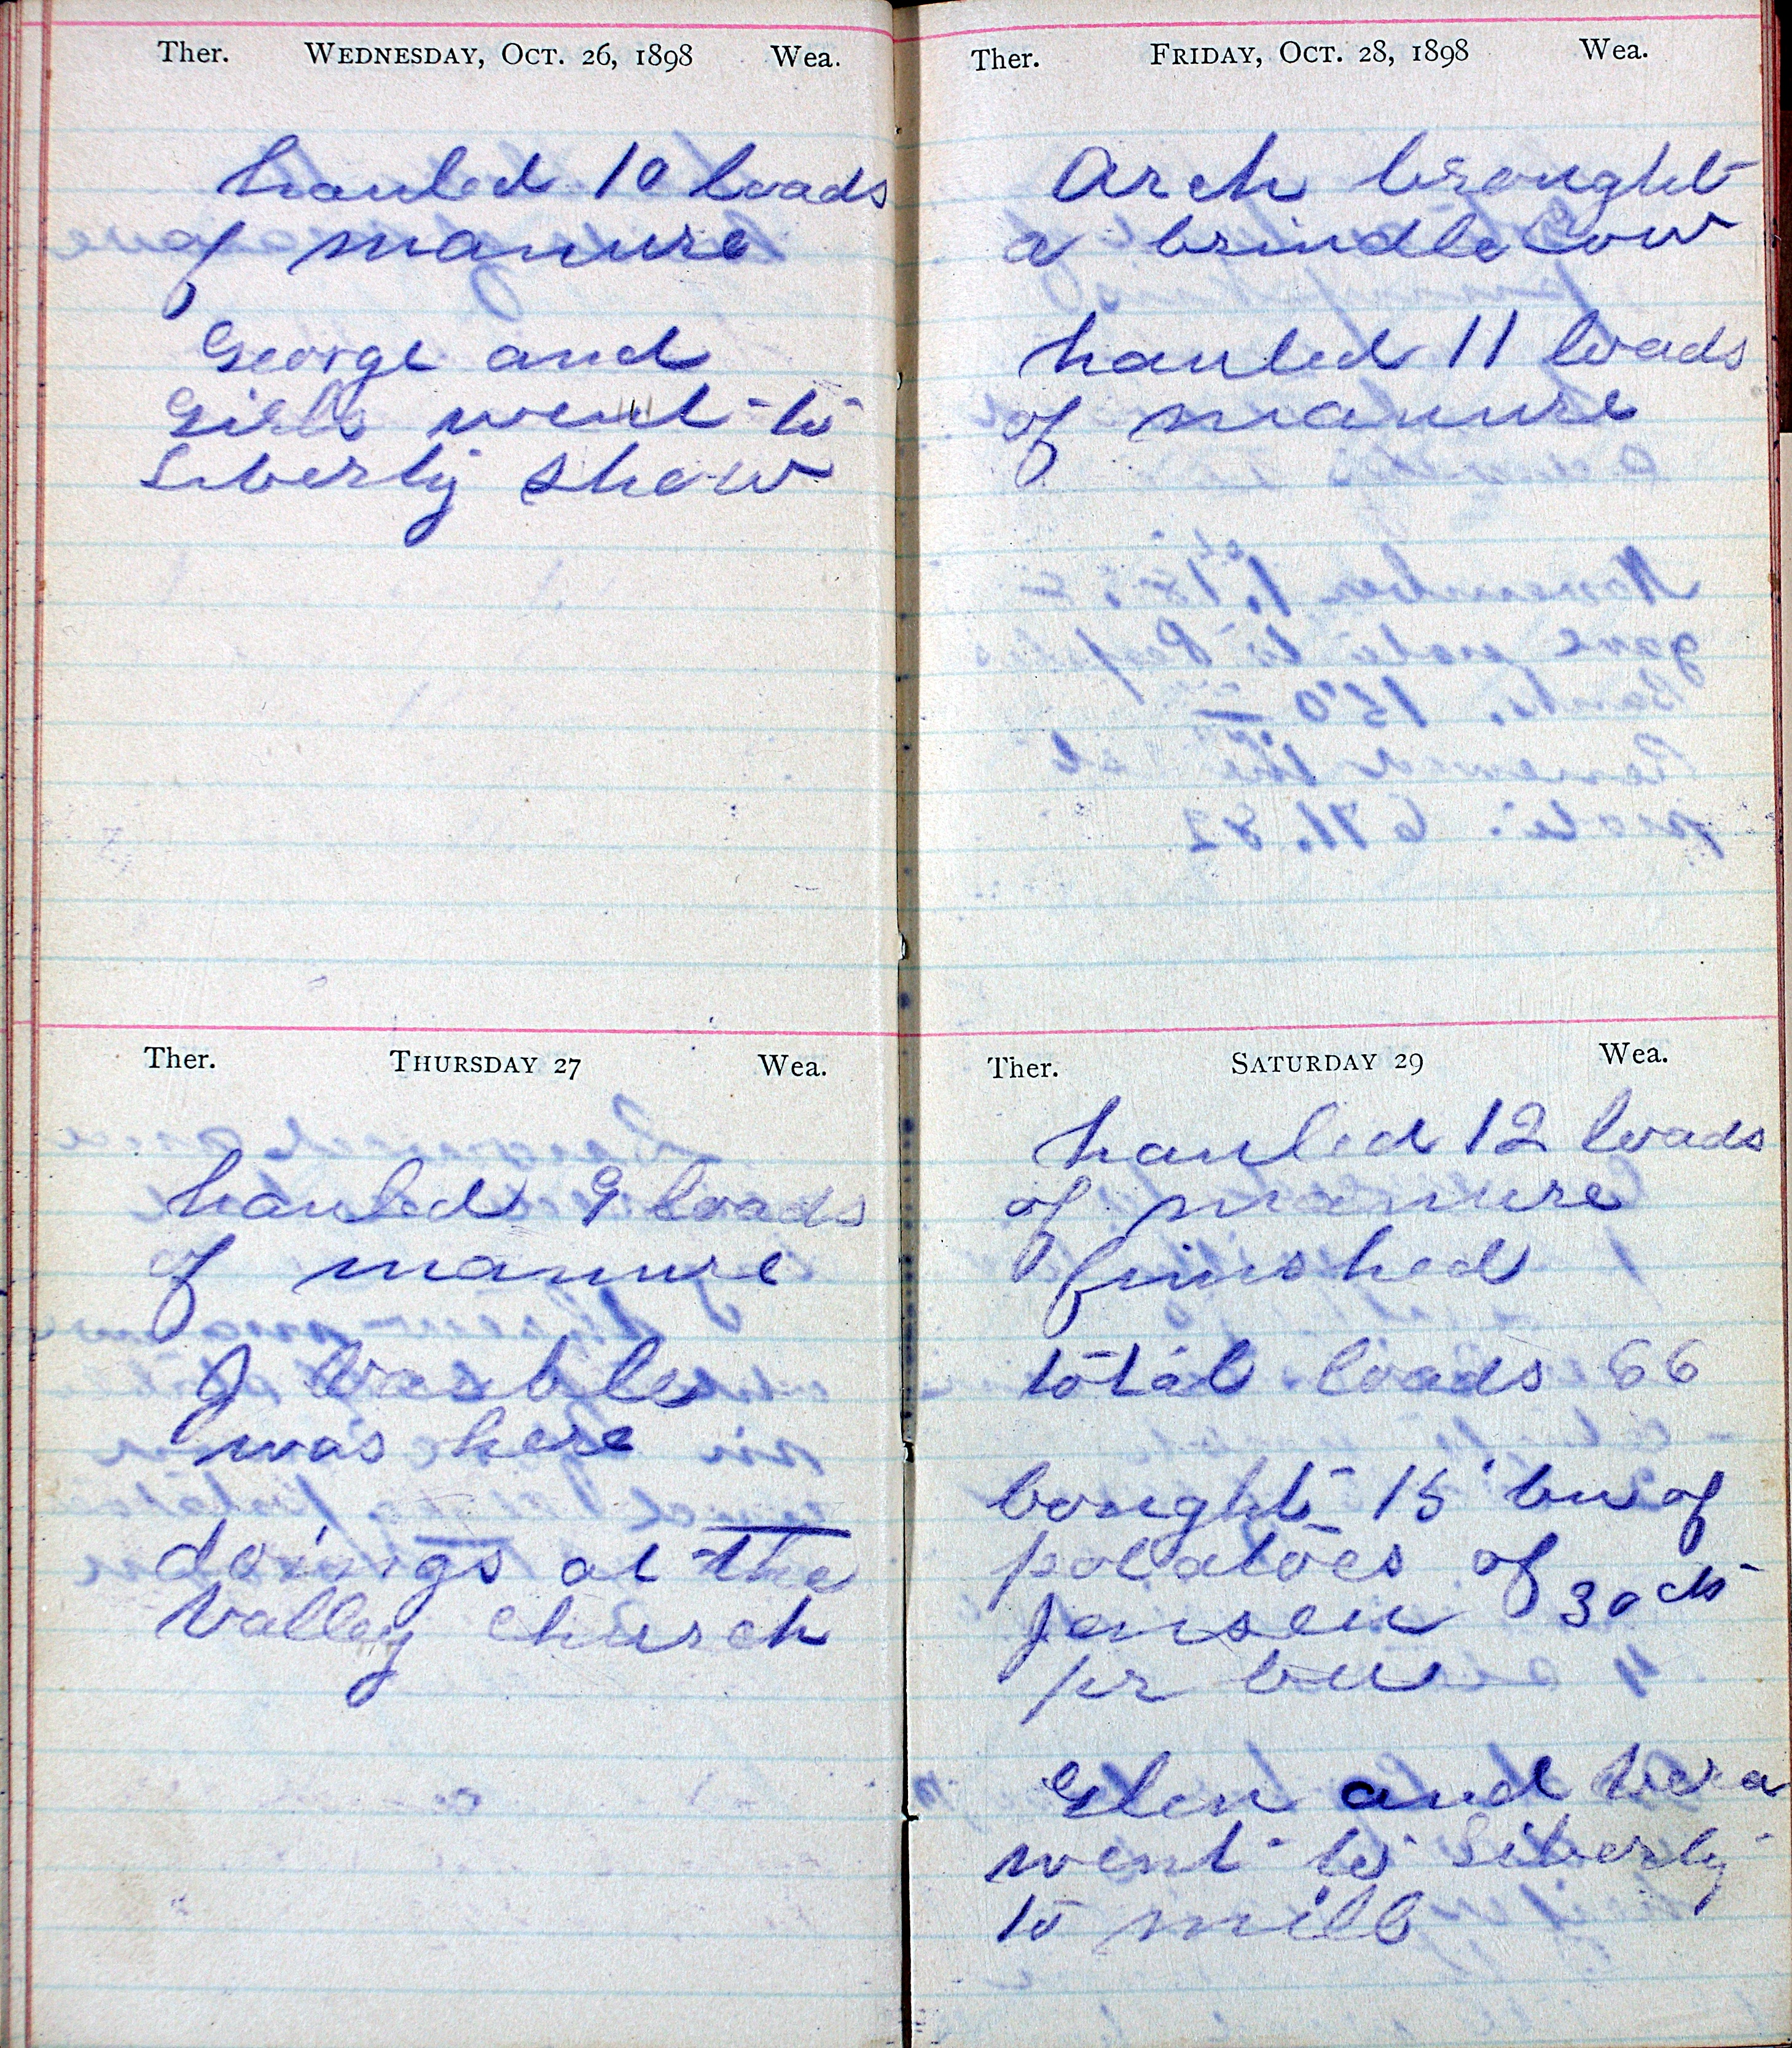 Ther. WEDNESDAY, OCT. 26, 1898 Wea.
hauled 10 loads
of manure
George and
Girls went to
Liberty show
Ther. THURSDAY 27 Wea.
hauled 9 loads
of manure
J
was here
doings at the
Valley Church
Ther. FRIDAY, OCT. 28, 1898 Wea.
Arch brought
a brindle Cow
hauled 11 loads
of manure
Ther. SATURDAY 29 Wea.
hauled 12 loads
of manure
finished
total loads 66
bought 15 bu of
potatoes of
Jensen 30 cts
pr bu
Glen and Vera
went to Liberty
to mill